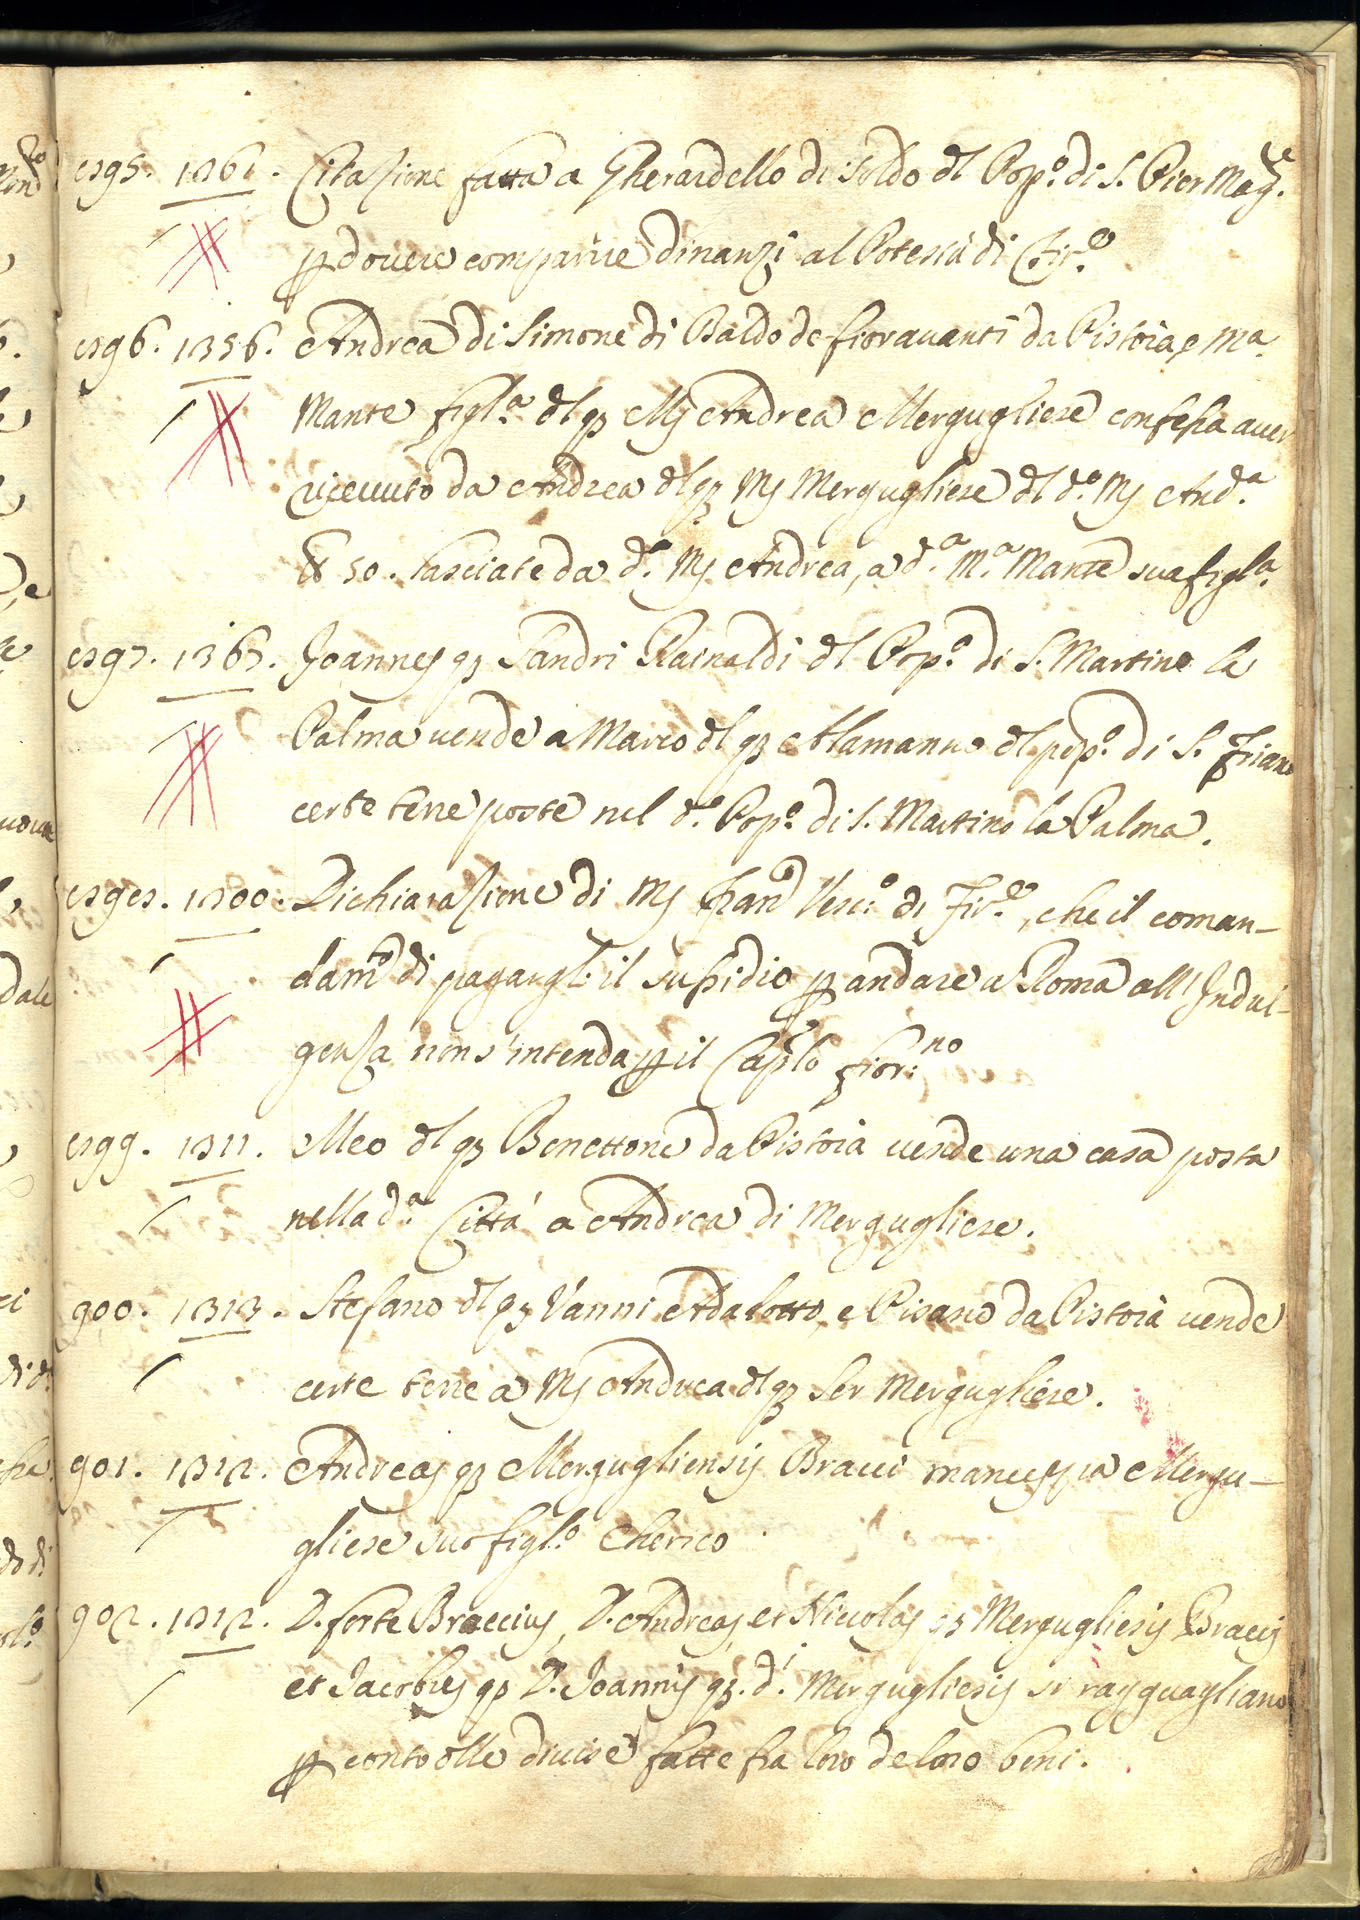 895. 1261. Citazione fatta a Gherardello di Soldo dl Pop.º di S. Pier Mag.re
p dovere comparire dinanzi al Potestà di Fir.e
896. 1356. Andrea di Simone di Baldo de Fioravanti da Pistoia, e M.a
Mante figl.a dl q Mſ Andrea Mergugliese confessa aver
ricevuto da Andrea dl q Mſ Mergugliese dl d.º Mſ And.a
50. lasciate da d.º Mſ Andrea, a d.a M.a Mante sua figl.a
897. 1363. Joannes q Sandri Rainaldi dl Pop.º di S. Martino la
Palma vende a Marco dl q Alamanno dl pop.º di S. Friano
certe terre poste nel d.º Pop.º di S. Martino la Palma.
898. 1300. Dichiarazione di Mſ Fran.º Vesc.º di Fir.e, che il coman-
dam.to di pagargl. il sussidio p andare a Roma all'Indul-
genza non s'intenda p il Cap.lo Fior:no
899. 1311. Meo dl q Benettone da Pistoia vende una casa posta
nella d.a Città a Andrea di Mergugliese.
900. 1313. Stefano dl q Vanni Adalotto, e Pisano da Pistoia vende
certe terre a Mſ Andrea dl q Ser Mergugliese.
901. 1312. Andreas q Mergugliensis Bracci mancipa Mergu-
gliese suo figl.º Cherico
902. 1312. D. Forte Braccius, D. Andreas et Niccolas q Mergugliesis Bracci
et Jacobus q D. Joannis q. d.i Mergugliesis si ragguagliano
p conto dlle divise fatte fra loro de loro beni.